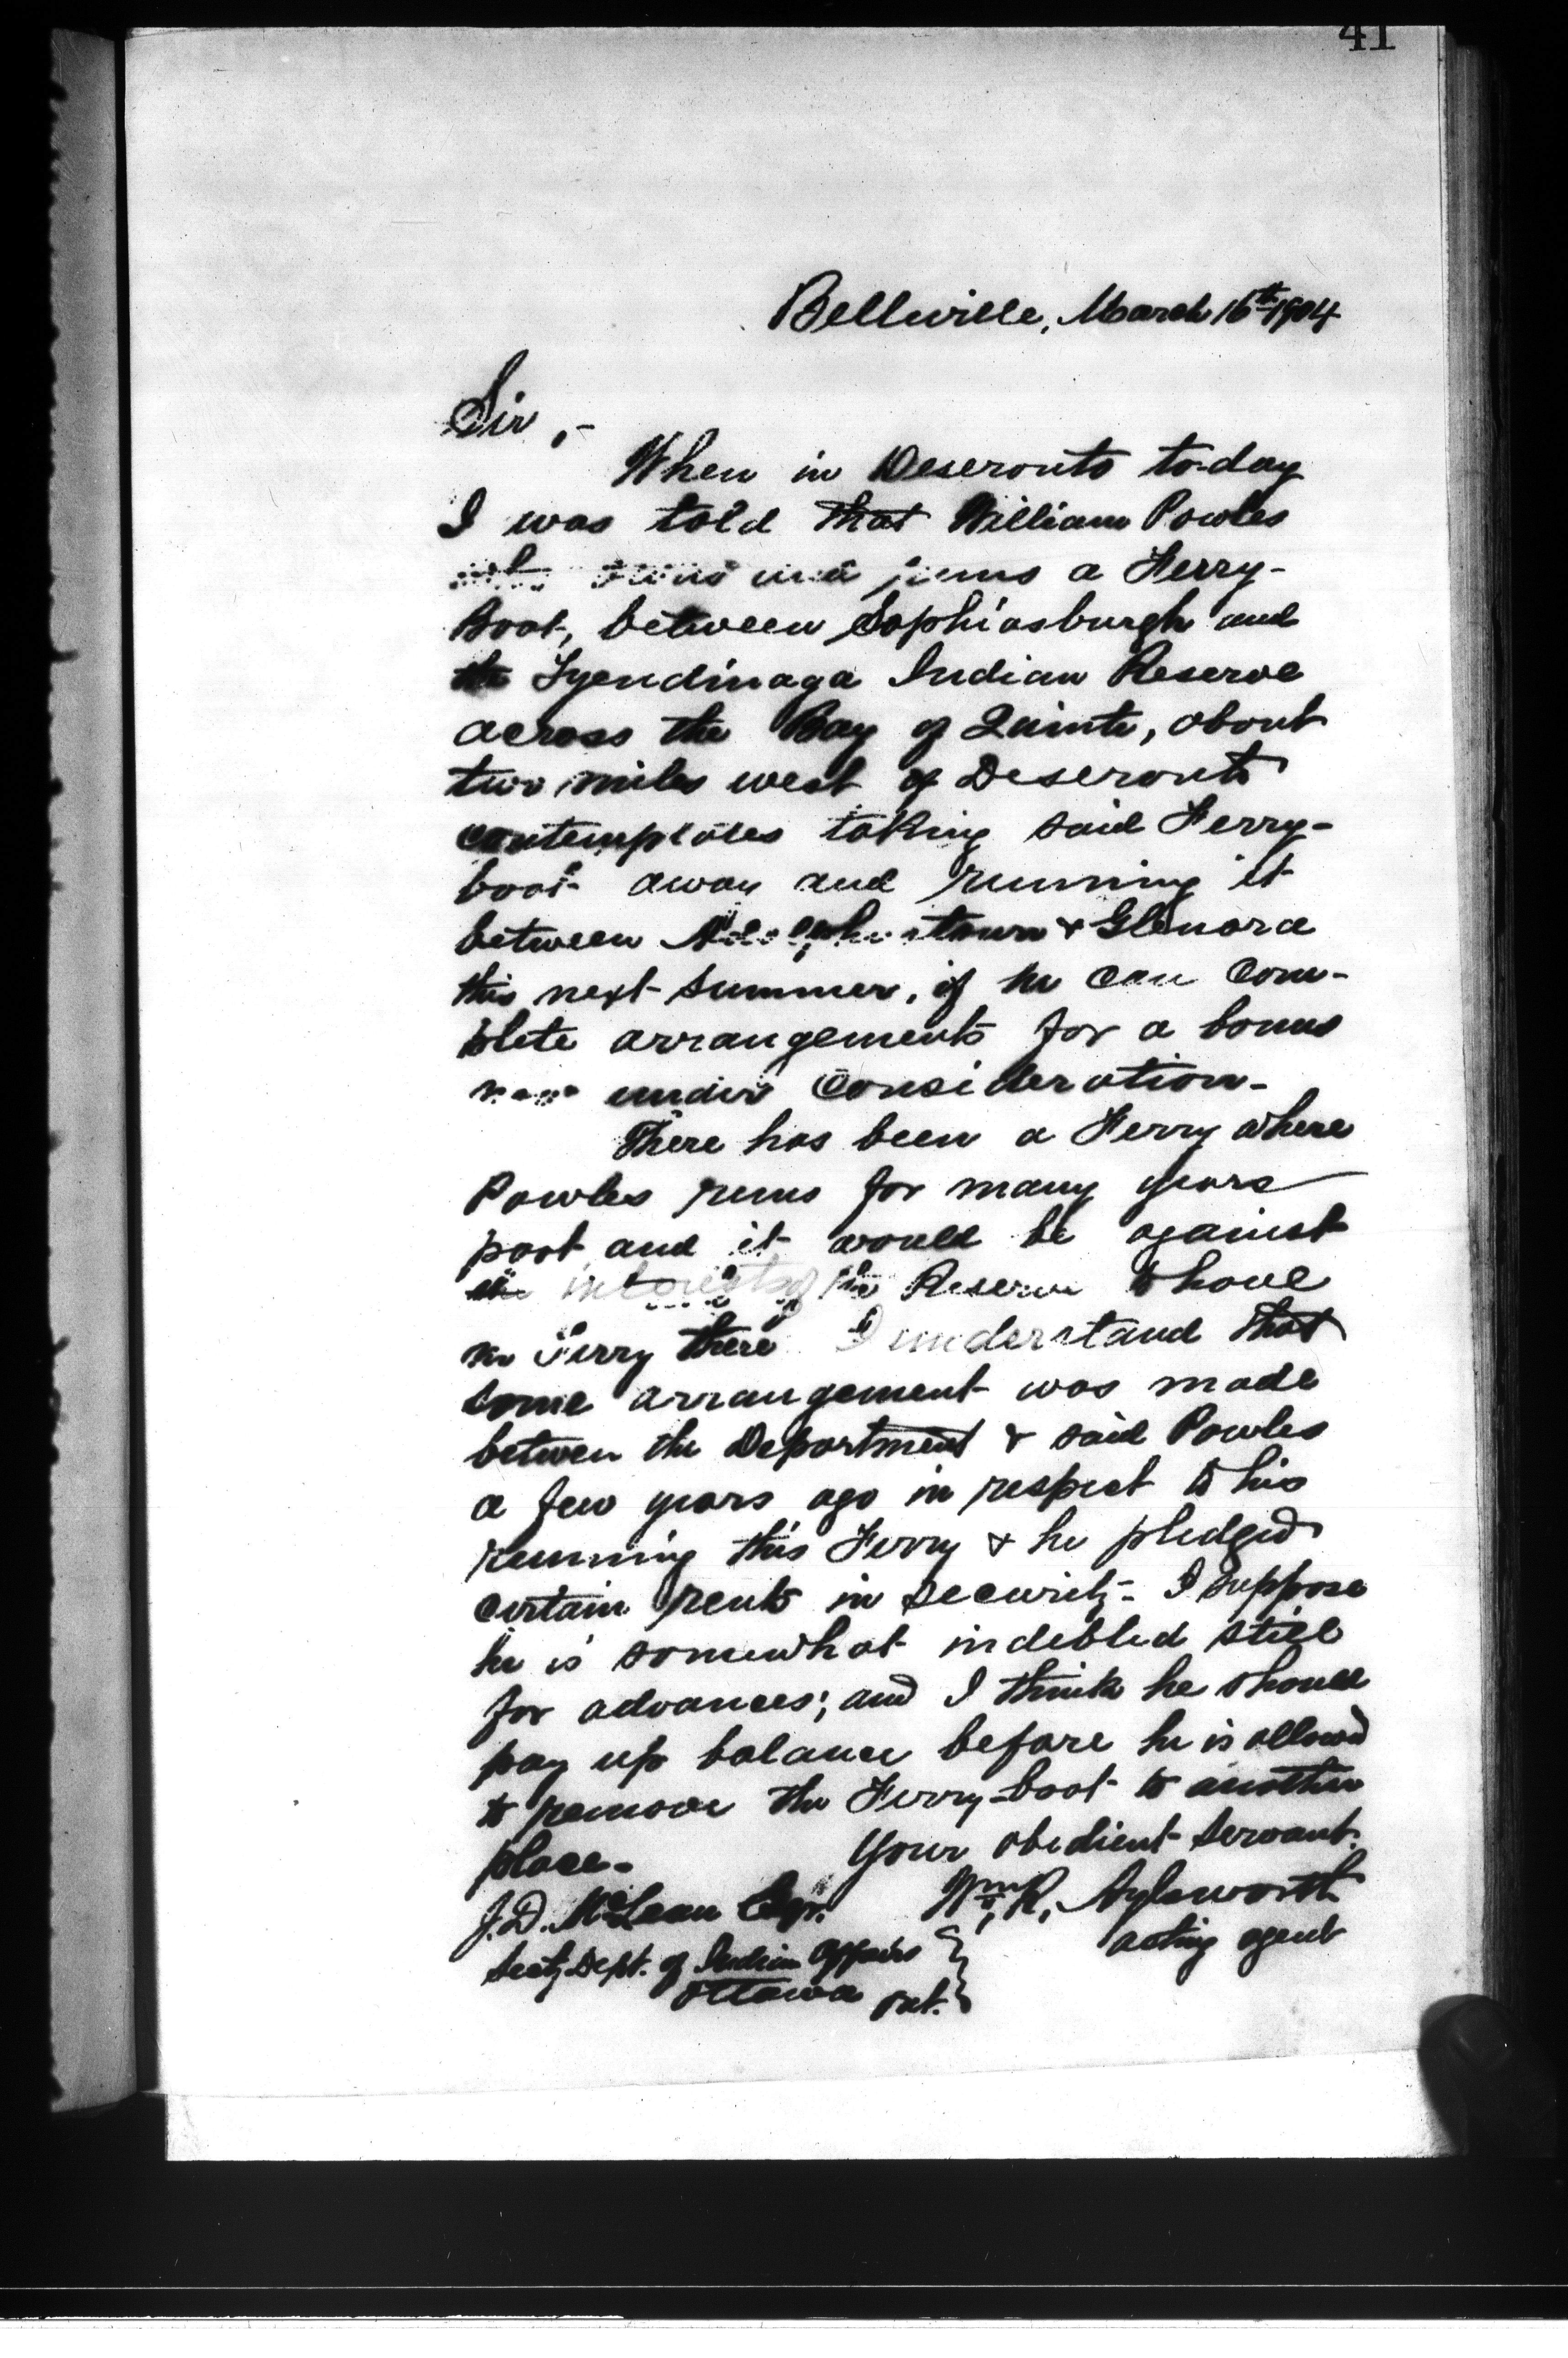 41
Belleville, March 16th 1904
Sir,-
When in Deseronto to-day
I was told that William Powles
who owns and runs a Ferry-
Boat, between Sophiasburgh and
the Tyendinaga Indian Reserve
across the Bay of Quinte, about
two miles west of Deseronto
contemplates taking said Ferry-
boat away and running it
between Adolphustown & Glenora
this next summer, if he can com-
plete arrangements for a bonus
now under consideration-
There has been a Ferry where
Powles runs for many years
past and it would be against
the interests of the Reserve to have
no Ferry there. I understand that
some arrangement was made
between the Department & said Powles
a few years ago in respect to his
running this Ferry & he pledged
certain rents in security- I suppose
he is somewhat indebted still
for advances; and I think he should
pay up balance before he is allowed
to remove the Ferry-boat to another
place- Your obedient servant.
J.D. McLean Esqr. Wm. R. Aylsworth
Secty Dept. of Indian Affairs acting agent
Ottawa Ont.